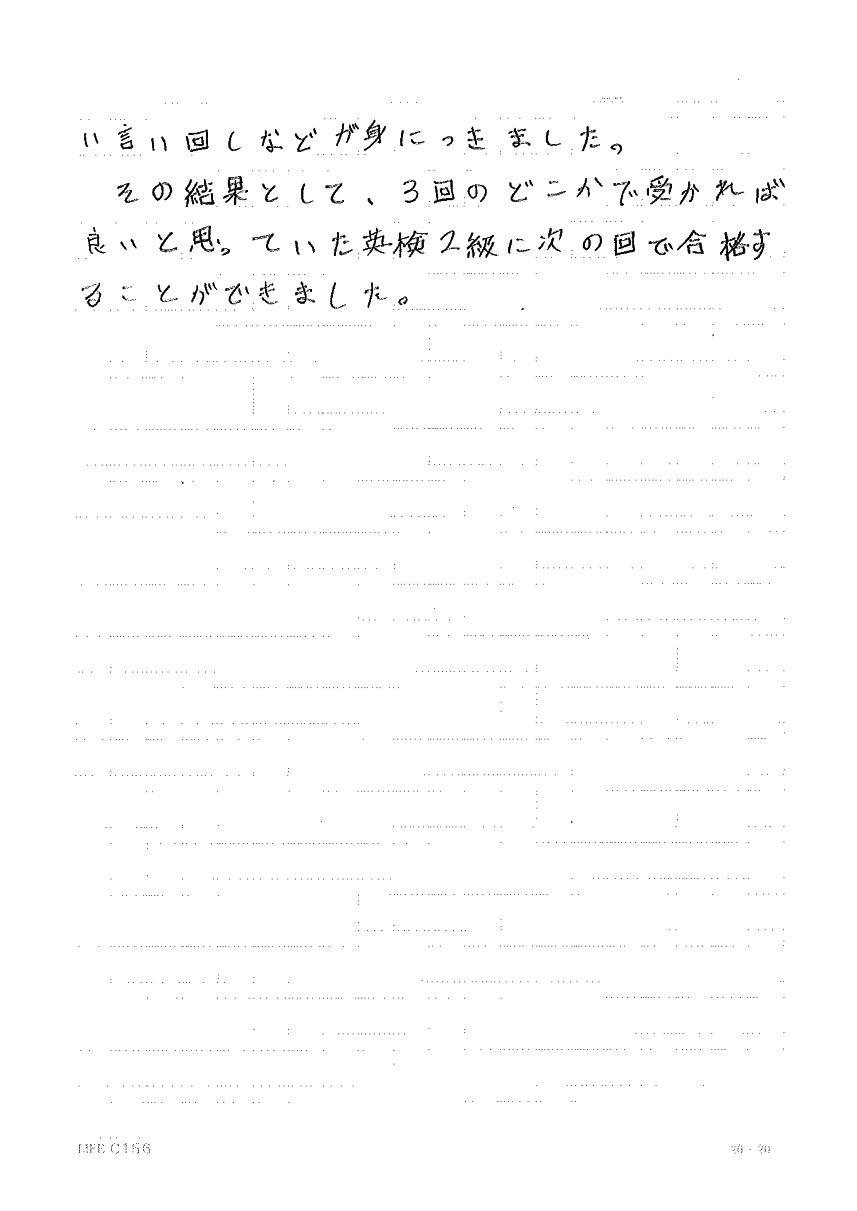 い言い回しなどが身につきました。
その結果として、3回のどこかで受かれば
良いと思っていた英検2級に次の回で合格す
ることができました。
LIFE C156
20・20